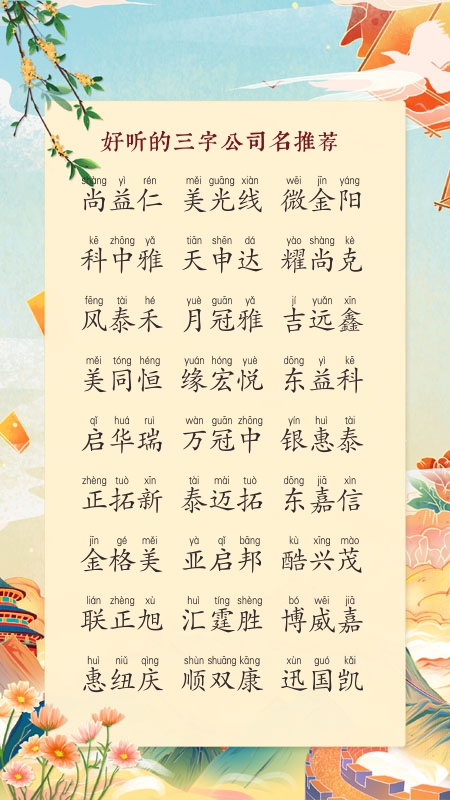 好听的三字公司名推荐
shàng yì rén měi guāng xiàn wēi jīn yáng
尚益仁 美光线 微金阳
kē zhōng yǎ tiān shēn dá yào shàng kè
科中雅 天申达 耀尚克
fēng tài hé yuè guān yǎ jí yuǎn xīn
风泰禾 月冠雅 吉远鑫
měi tóng héng yuán hóng yuè dōng yì kē
美同恒 缘宏悦 东益科
qǐ huá ruì wàn guān zhōng yín huì tài
启华瑞 万冠中 银惠泰
zhèng tuò xīn tài mài tuò dōng jiā xìn
正拓新 泰迈拓 东嘉信
jīn gé měi yà qǐ bāng kù xīng mào
金格美 亚启邦 酷兴茂
lián zhèng xù huì tíng shèng bó wēi jiā
联正旭 汇霆胜 博威嘉
huì niǔ qìng shùn shuāng kāng xùn guó kǎi
惠纽庆 顺双康 迅国凯